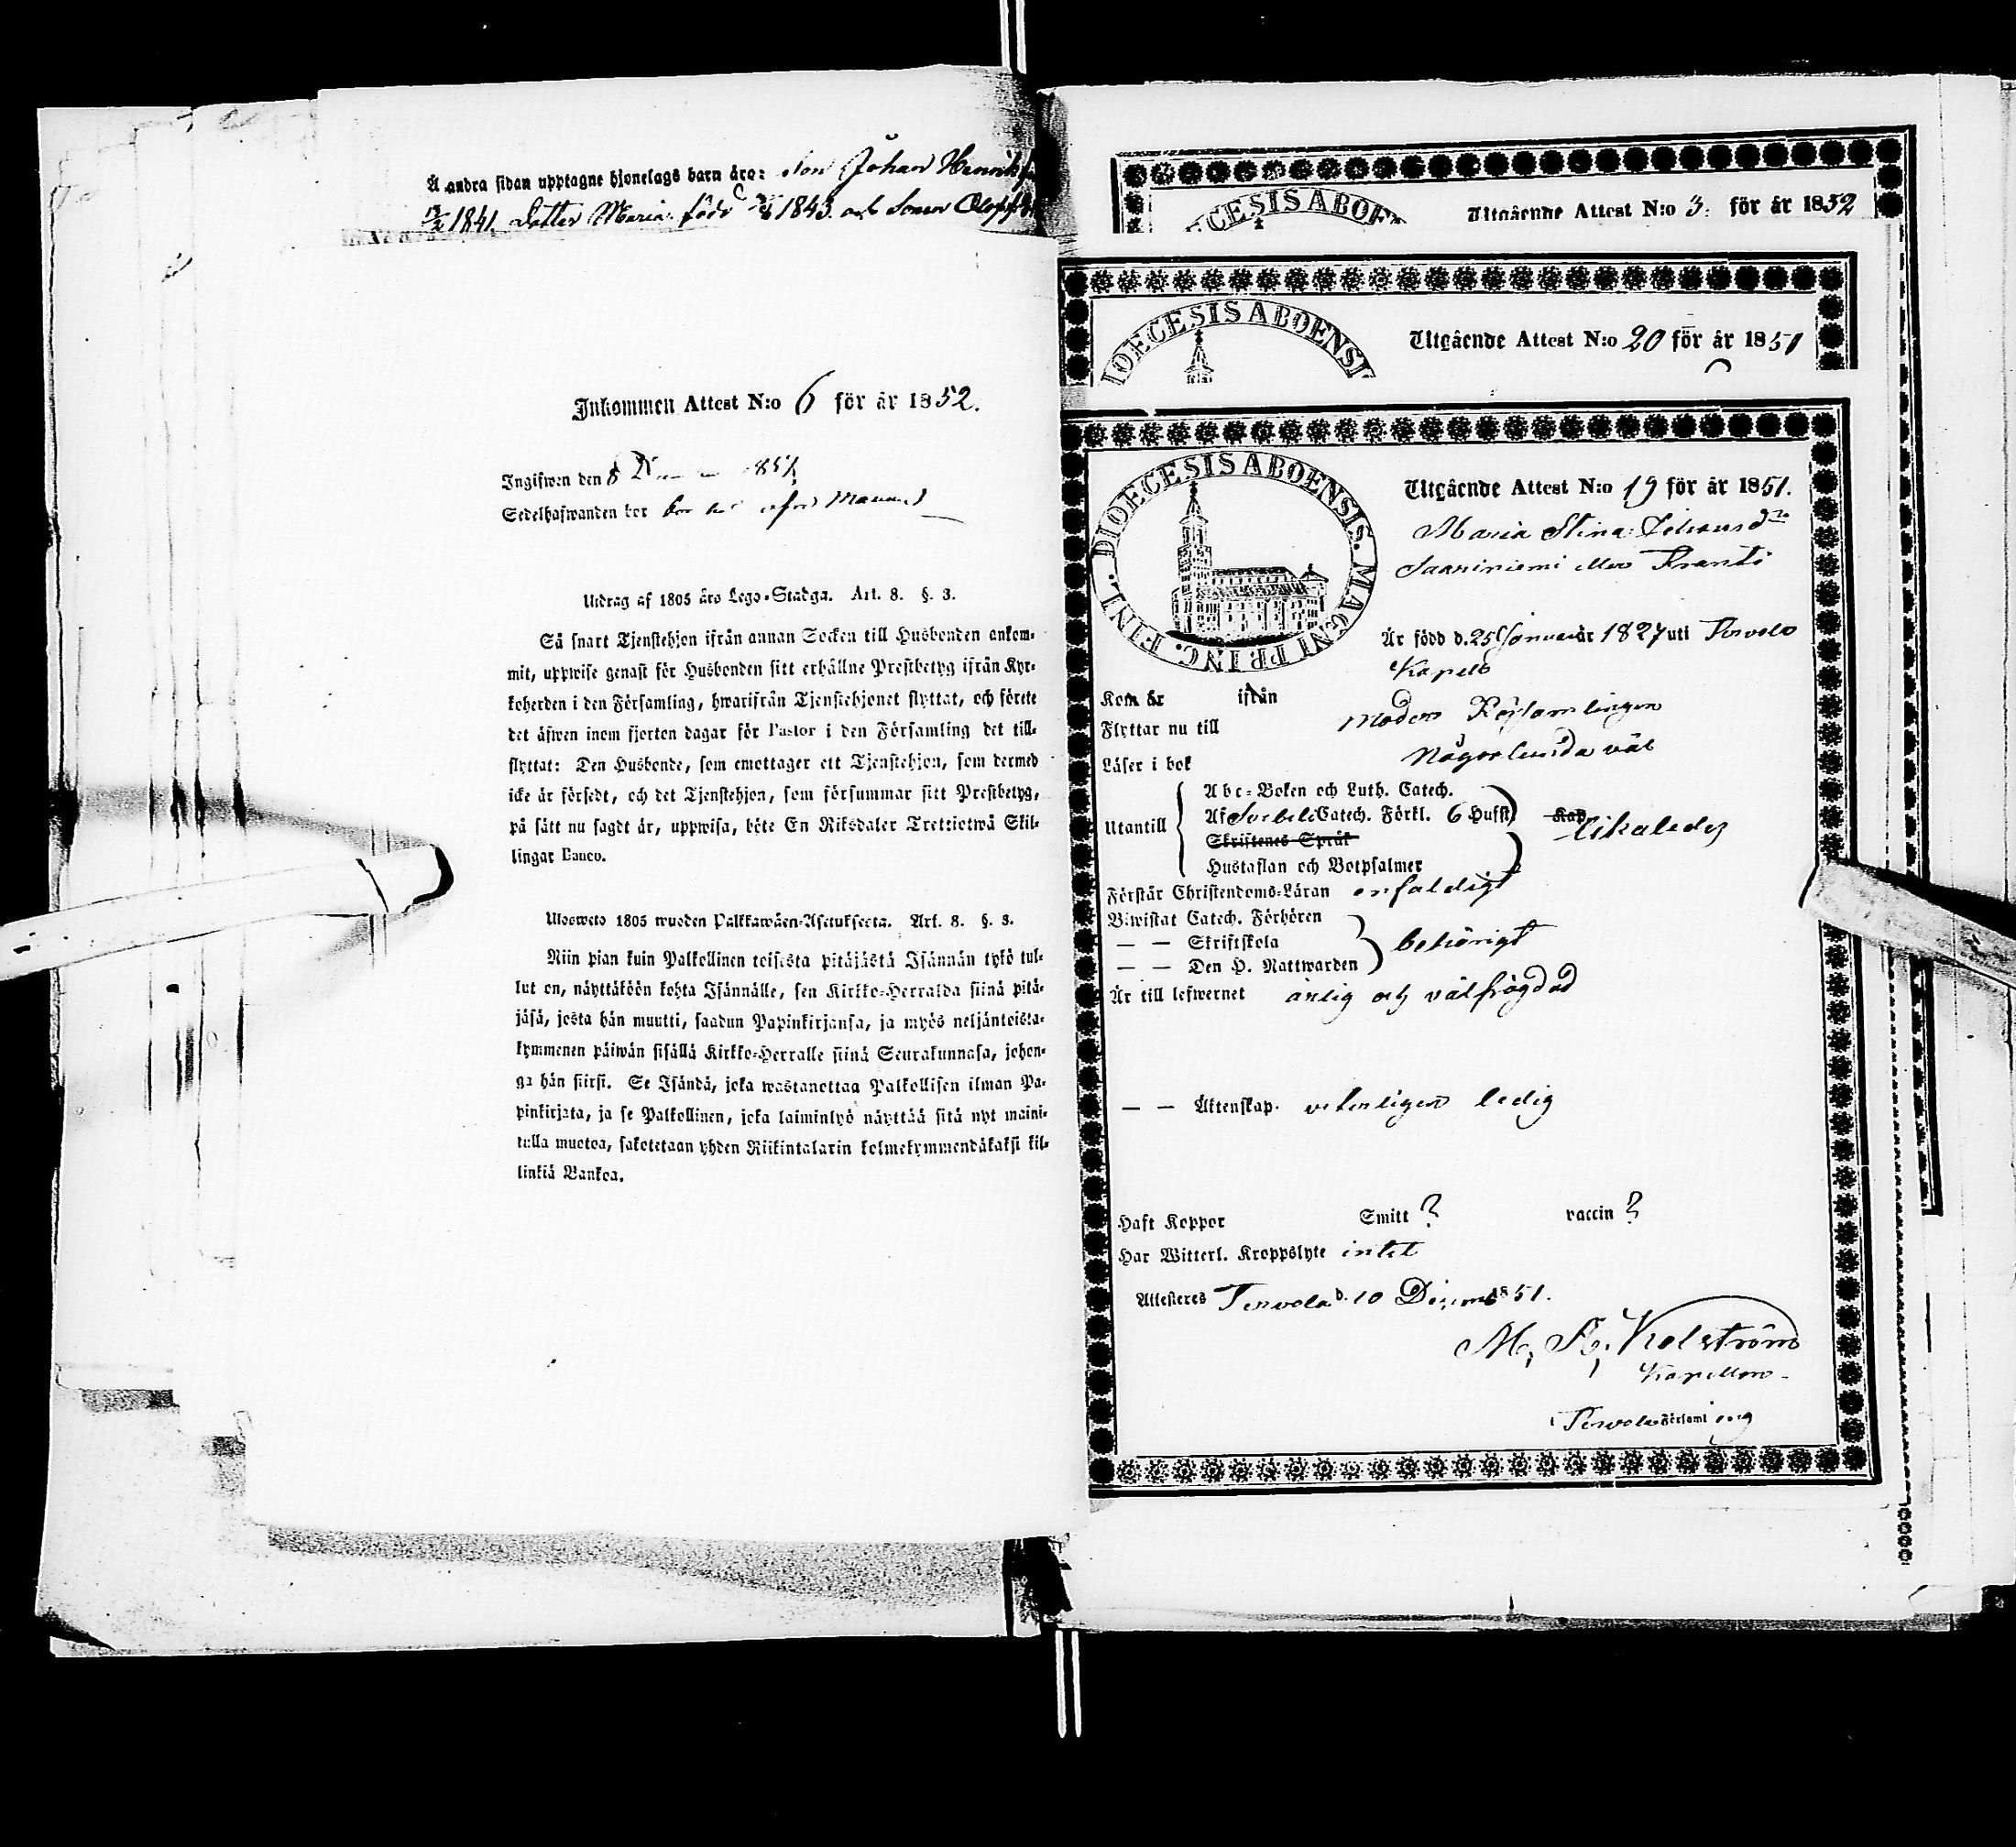 Å andra sidan upptagne hjonelags barn äro: son Johan Henrik
1841. Dotter Maria född 1843. och Sonen Olof
Inkommen Attest N:o 6 för år 1852.
Ingifwen den 8 1851
Sedelhafwanden bor
Utdrag af 1805 års Lego-Stadga. Art. 8. §. 3.
Så snart Tjenstehjon ifrån annan Socken till Husbonden ankom-
mit, uppwise genast för Husbonden sitt erhållne Prestbetyg ifrån Kyr-
koherden i den Församling, hwarifrån Tjenstehjonet flyttat, och förete
det äfwen inom fjorton dagar för Pastor i den Församling det till-
flyttat: Den Husbonde, som emottager ett Tjenstehjon, som dermed
icke är försedt, och det Tjenstehjon, som försummar sitt Prestbetyg,
på sätt nu sagdt är, uppwisa, böte En Riksdaler Trettiotwå Skil-
lingar Banco.
Ulosweto 1805 wuoden Palkkawäen-Asetuksesta. Art. 8. §. 3.
Niin pian kuin Palkollinen toisesta pitäjästä Isännän tykö tul-
lut on, näyttäköön kohta Isännälle, sen Kirkko-Herralda siinä pitä-
jäsä, josta hän muutti, saadun Papinkirjansa, ja myös neljäntoista-
kymmenen päiwän sisällä Kirkko-Herralle siinä Seurakunnasa, johon-
ga hän siirsi. Se Isändä, joka wastanottaa Palkollisen ilman Pa-
pinkirjata, ja se Palkollinen, joka laiminlyö näyttää sitä nyt maini-
tulla muotoa, sakotetaan yhden Riikintalarin kolmekymmendäkaksi kil-
linkiä Bankoa.
CESIS ABOE
Utgående Attest N:o 3. för år 1852
IOECESIS ABOENSI
Utgående Attest N:o 20 för år 1851
DIOECESIS ABOENSIS. MAGNI PRINC. FINL.
Utgående Attest N:o 19 för år 1851.
Maria Stina Johansdr
Saariniemi eller
Är född d. 25 Januari år 1827 uti Tervola
Kapell
Kom år ifrån
Flyttar nu till Moder Församlingen
Läser i bok Någorlunda väl
Abc-Boken och Luth. Catech.
Utantill Af Svebeli Catech. Förkl. 6 Husst Kap likaledes
Skriftenes Språk
Hustaflan och Botpsalmer
Förstår Christendoms-Läran enfaldigt
Biwistat Catech. Förhören
— — Skriftskola behörigt
— — Den H. Nattwarden
Är till lefwernet ärlig och välfrägdad
— — Äktenskap. veterligen ledig
Haft Koppor Smitt ? vaccin ?
Har Witterl. Kroppslyte intet
Attesteres Tervola d. 10 Decemb 1851.
M. A. Kolström
Kapellan
Tervola Församling